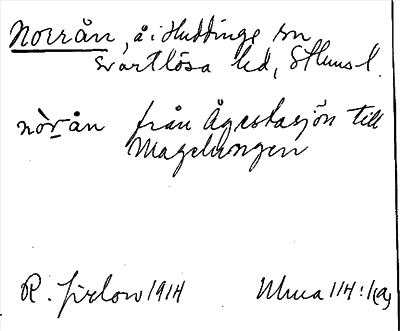 Norrån, å i Huddinge sn
Svartlösa hd, Sthms l.
nòr̀ån från Ågestasjön till
Magelungen
R. Jirlow 1914